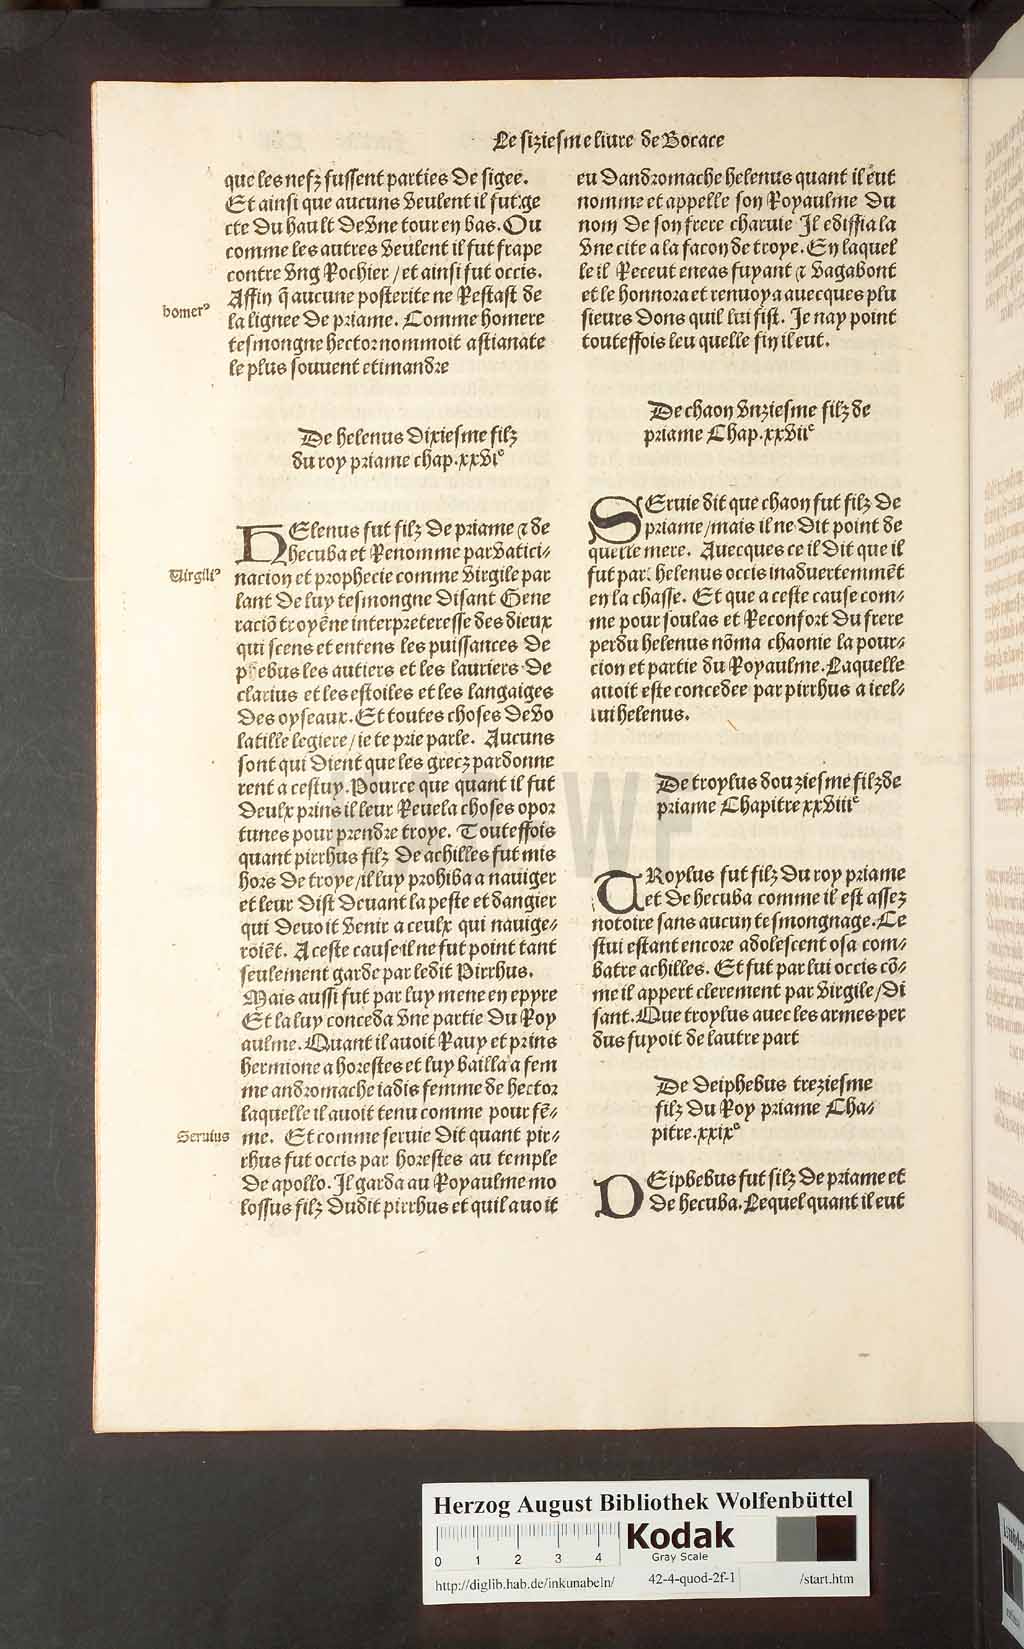 Le siziesme liure de Bocace
que les nefz fussent parties de sigee.
Et ainsi que aucuns veulent il fut ge
cte du hault de vne tour en bas. Ou
comme les autres veulent il fut frape
contre vng Rochier / et ainsi fut occis.
Affin q̃ aucune posterite ne Restast de
homerꝰ
la lignee de priame. Comme homere
tesmongne hector nommoit astianate
le plus souuent etimandre
De helenus dixiesme filz
du roy priame chap. xxviᵉ
HElenus fut filz de priame ⁊ de
hecuba et Renomme par vatici⸗
Virgiliꝰ
nacion et prophecie comme virgile par
lant de luy tesmongne disant Gene
raciõ troyẽne interpreteresse des dieux
qui scens et entens les puissances de
phebus les autiers et les lauriers de
clarius et les estoiles et les langaiges
des oyseaux. Et toutes choses de vo
latille legiere / ie te prie parle. Aucuns
sont qui dient que les grecz pardonne
rent a cestuy. Pource que quant il fut
deulx prins il leur Reuela choses opor
tunes pour prendre troye. Touteffois
quant pirrhus filz de achilles fut mis
hors de troye / il luy prohiba a nauiger
et leur dist deuant la peste et dangier
qui deuoit venir a ceulx qui nauige⸗
roiẽt. A ceste cause il ne fut point tant
seulement garde par ledit Pirrhus.
Mais aussi fut par luy mene en epyre
Et la luy conceda vne partie du Roy
aulme. Quant il auoit Rauy et prins
hermione a horestes et luy bailla a fem
me andromache iadis femme de hector
laquelle il auoit tenu comme pour fẽ⸗
Seruius
me. Et comme seruie dit quant pir⸗
rhus fut occis par horestes au temple
de apollo. Il garda au Royaulme mo
lossus filz dudit pirrhus et quil auoit
eu dandromache helenus quant il eut
nomme et appelle son Royaulme du
nom de son frere charuie Il ediffia la
vne cite a la facon de troye. En laquel
le il Receut eneas fuyant ⁊ vagabont
et le honnora et renuoya auecques plu
sieurs dons quil lui fist. Je nay point
touteffois leu quelle fin il eut.
De chaon vnziesme filz de
priame Chap. xxviiᵉ
SEruie dit que chaon fut filz de
priame / mais il ne dit point de
quelle mere. Auecques ce il dit que il
fut par helenus occis inaduertemmẽt
en la chasse. Et que a ceste cause com⸗
me pour soulas et Reconfort du frere
perdu helenus nõma chaonie la pour⸗
cion et partie du Royaulme. Laquelle
auoit este concedee par pirrhus a icel⸗
lui helenus.
De troylus douziesme filz de
priame Chapitre xxviiiᵉ
TRoylus fut filz du roy priame
et de hecuba comme il est assez
notoire sans aucun tesmongnage. Ce
stui estant encore adolescent osa com⸗
batre achilles. Et fut par lui occis cõ⸗
me il appert clerement par virgile / di
sant. Que troylus auec les armes per
dus fuyoit de lautre part
De deiphebus treziesme
filz du Roy priame Cha⸗
pitre. xxixᵉ
DEiphebus fut filz de priame et
de hecuba. Lequel quant il eut
HAB WF
Herzog August Bibliothek Wolfenbüttel
0 1 2 3 4
Kodak
Gray Scale
http://diglib.hab.de/inkunabeln/ 42-4-quod-2f-1 /start.htm